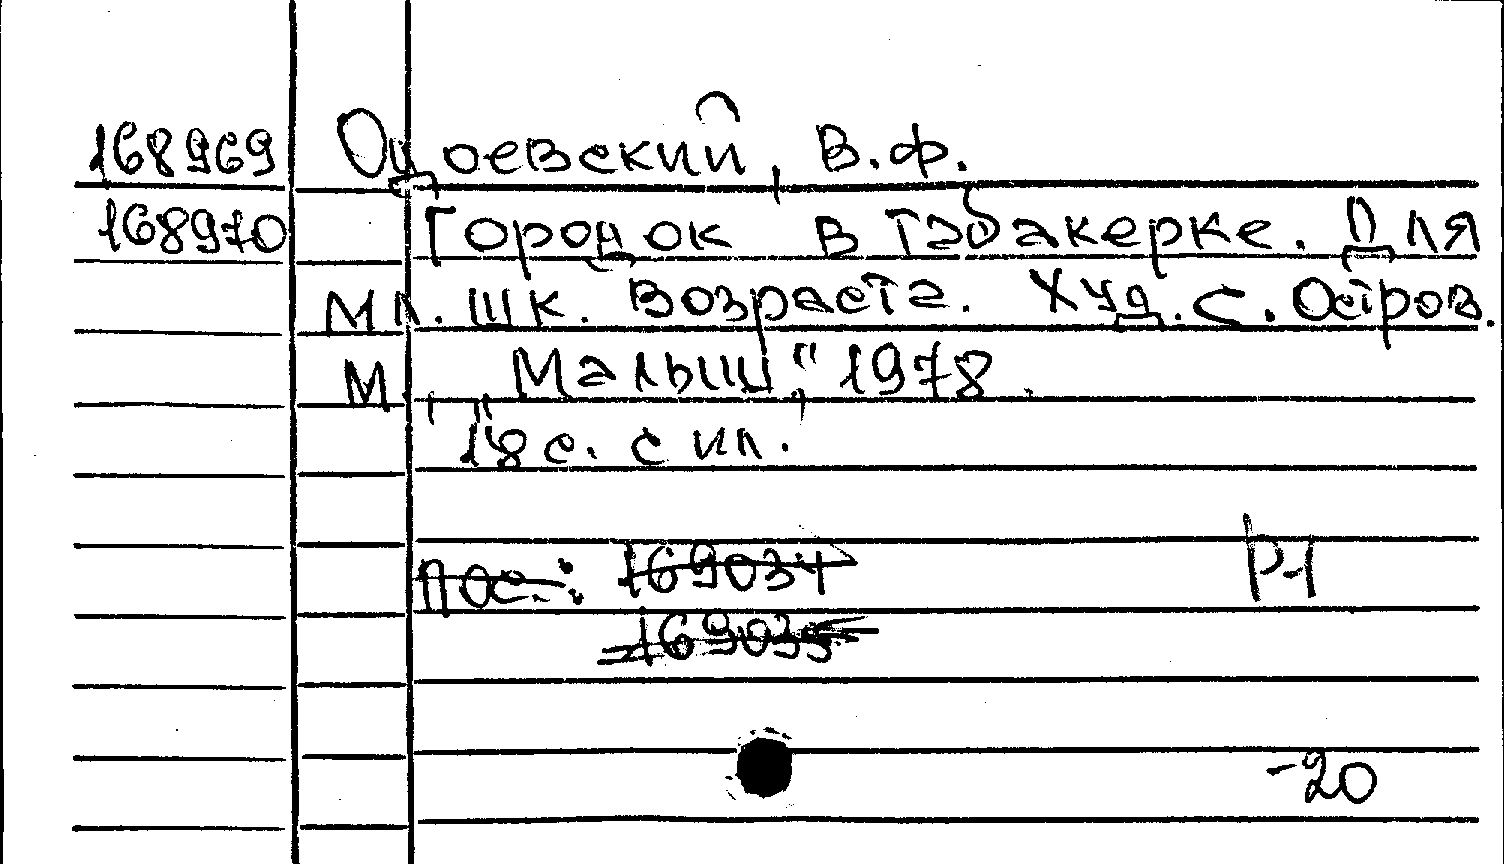 168969 Одоевский, В.Ф.
168970 Городок в табакерке. Для
мл. шк. возраста. Худ. С. Остров.
М., "Малыш", 1978.
18 с. с ил.
Пос.: 169034
169035
Р1
-20